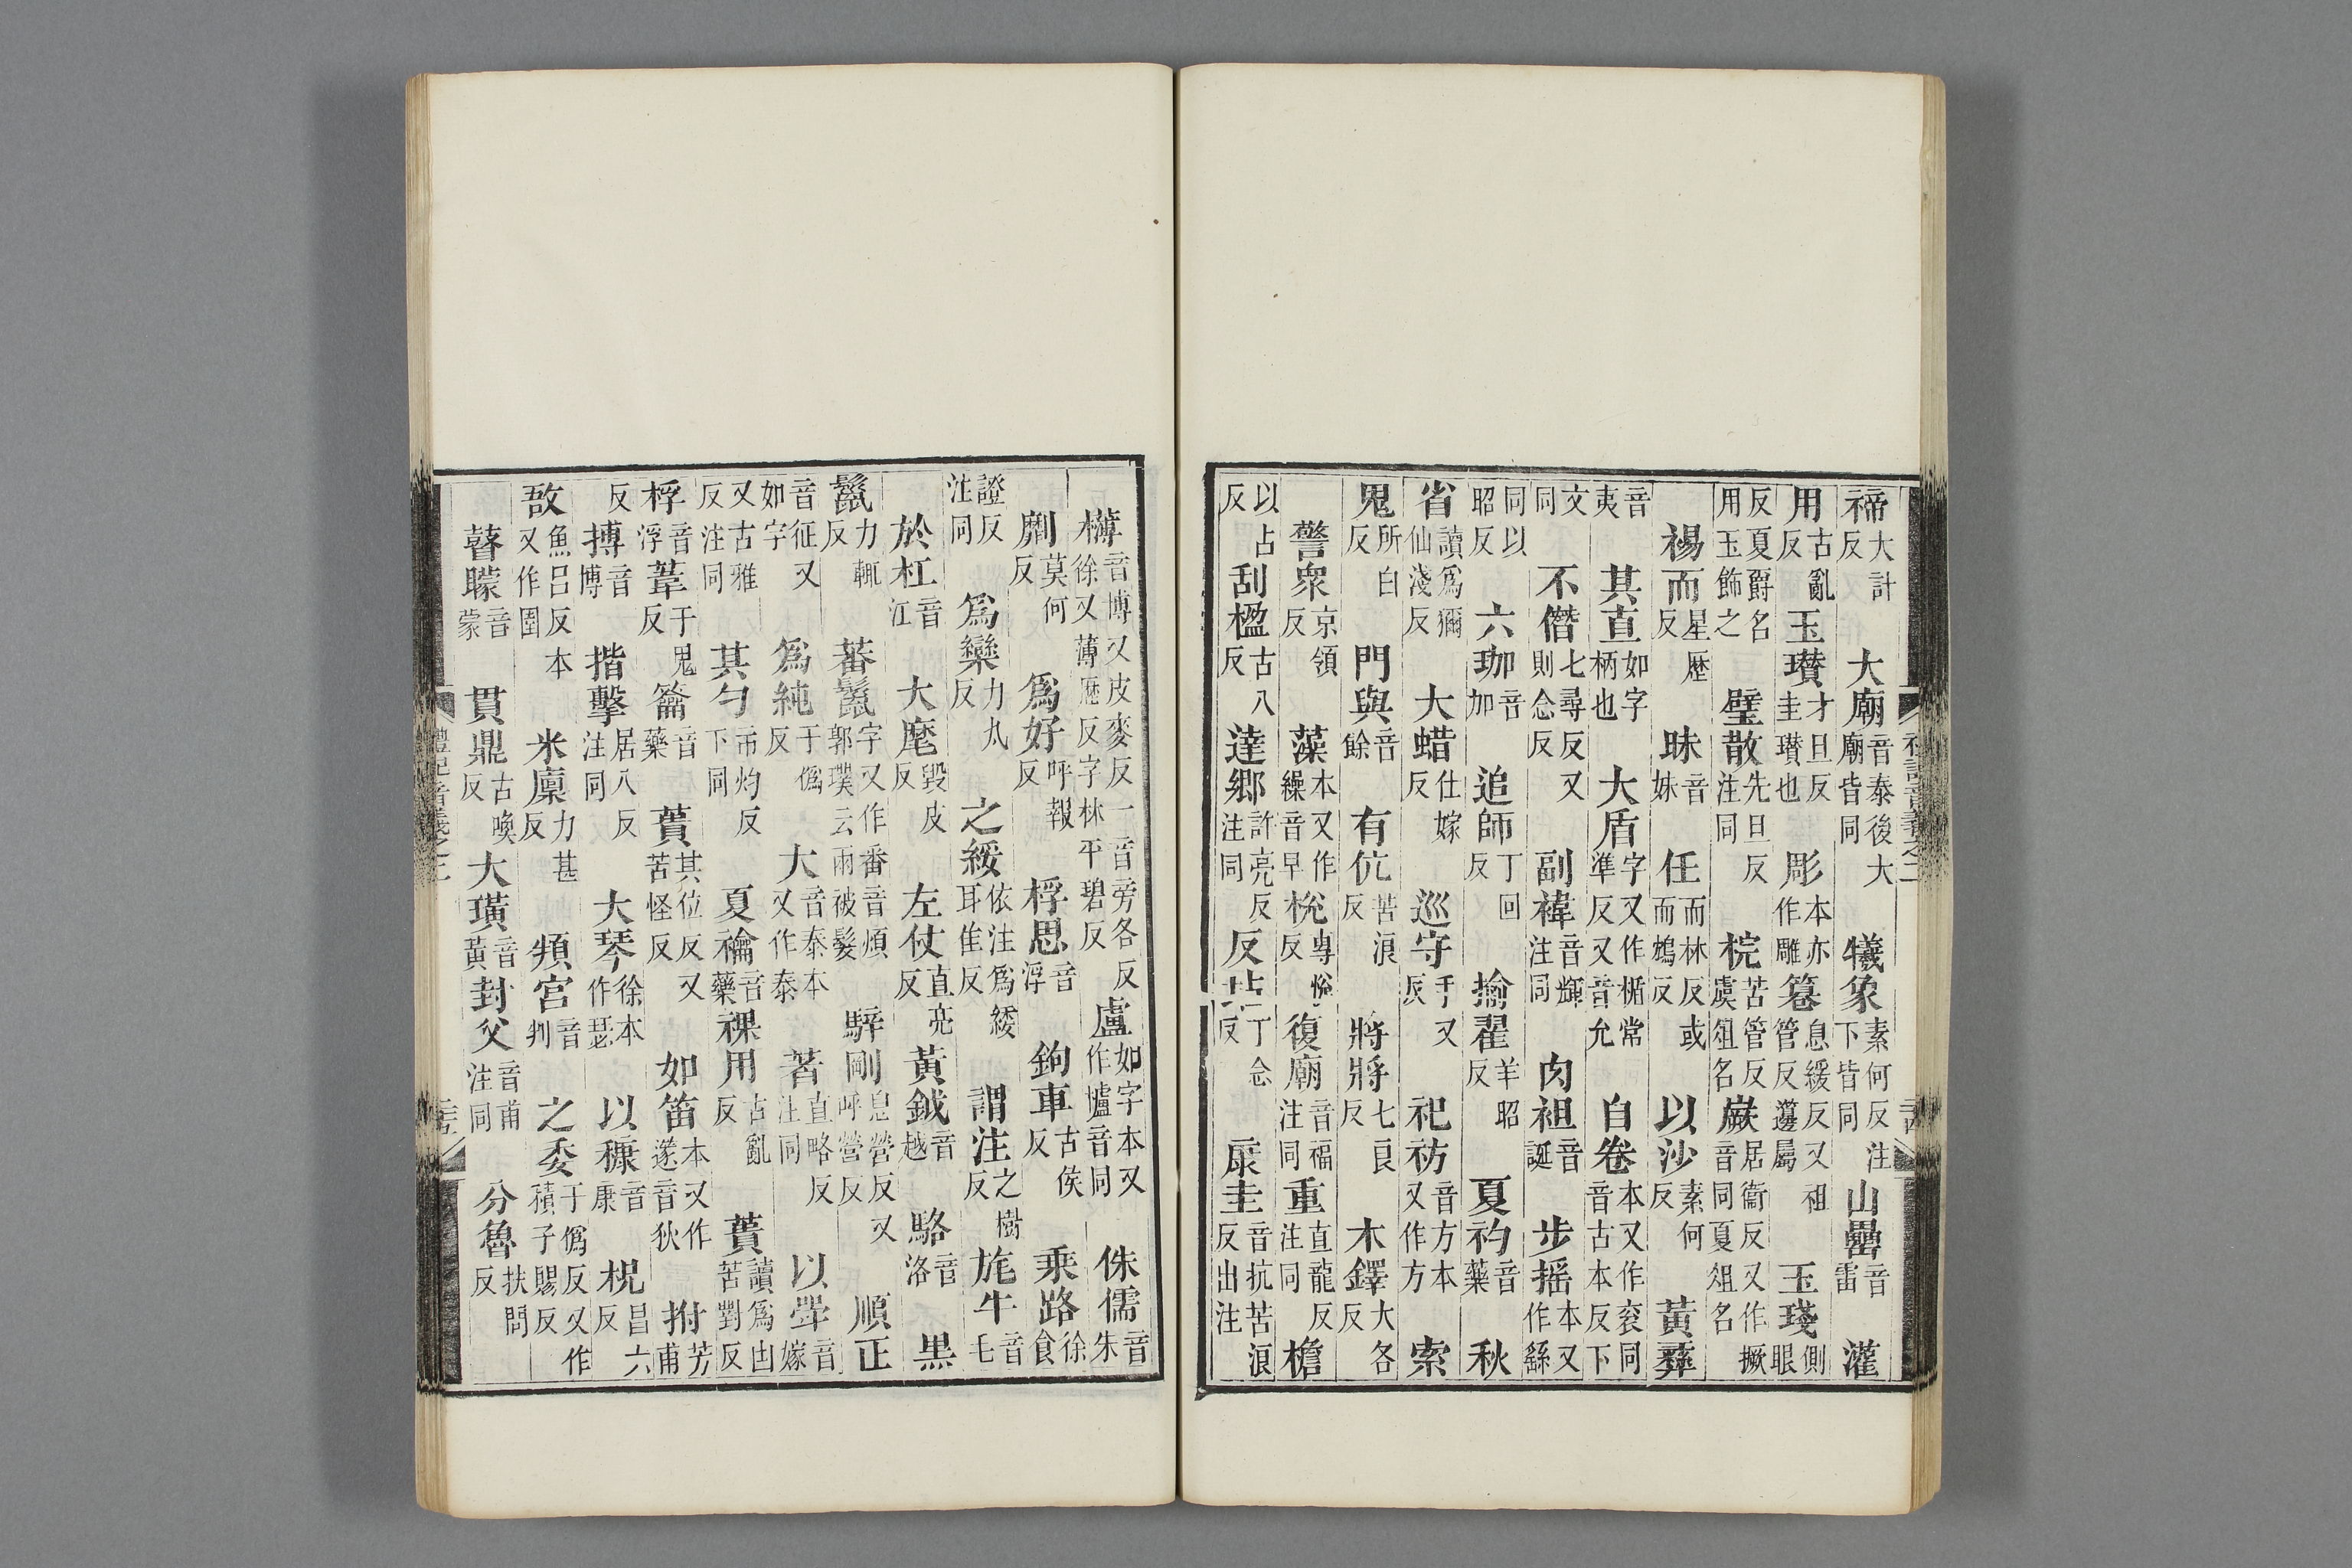 禘大計反大廟音泰後大廟皆同犧象素何反注下皆同山罍音雷灌
用古亂反玉瓚才旦反圭瓚也彫本亦作雕篹息緩反又祖管反籩屬玉琖側眼
反夏爵名用玉飾之璧散先旦反注同梡苦管反虞俎名嶡居衞反又作橛音同夏俎名
裼而星歷反昧音妹任而林反或而鴆反以沙素何反黃彝
音夷其直如字柄也大盾字又作楯常準反又音允白卷本又作衮同音古本反下
文同不僭七尋反又則念反副褘音輝注同肉袒音誕步摇本又作繇
同以昭反六珈音加追師丁回反揄翟羊昭反夏礿音藥秋
省讀爲獮仙淺反大蜡仕嫁反巡守手又反祀祊音方本又作方索
鬼所白反門與音餘有伉苦浪反將將七良反木鐸大各反
警衆京領反藻本又作繅音早梲專悅反復廟音福注同重直龍反注同檐
以占反刮楹古八反達鄉許亮反注同反坫丁念反康圭音抗苦浪反出注
欂音博又皮麥反一音旁各反徐又薄歷反字林平碧反盧如字本又作壚音同侏儒音朱
劘莫何反爲好呼報反桴思音浮鉤車古侯反乘路徐食
證反注同爲欒力丸反之綏依注爲緌耳隹反謂注之樹反旄牛音毛
於杠音江大麾毀皮反左仗直亮反黃鉞音越駱音洛黑
鬣力輒反蕃鬣字又作番音煩郭璞云兩被髮騂剛息營反又呼營反順正
音征又如字爲純于僞反大音泰本又作泰著直略反注同以斝音嫁
又古雅反注同其勺市灼反下同夏禴音藥祼用古亂反蕢讀爲凷苦對反
桴音浮葦于鬼反籥音藥蕢其位反又苦怪反如笛本又作篴音狄拊芳甫
反搏音博揩擊居八反注同大琴徐本作瑟以穅音康柷昌六反
敔魚呂反本又作圉米廩力甚反頖宮音判之委于僞反又作積子賜反
瞽矇音蒙貫鼎古喚反大璜音黃封父音甫注同分魯扶問反